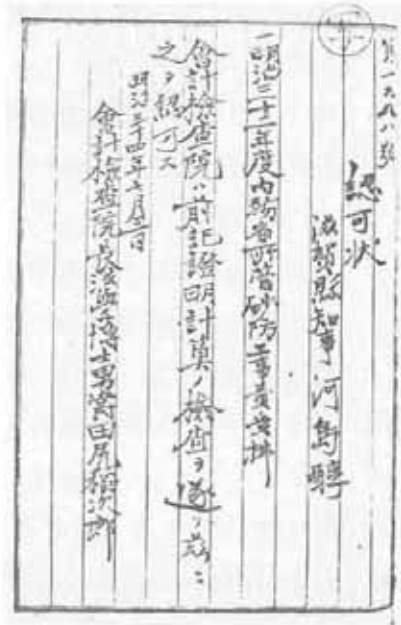 第一六九八號
認可状
滋賀縣知事河島醇
一明治三十一年度内務省所管砂防工事費
會計檢査院ハ前記證明計算ノ檢査ヲ遂ケ茲ニ
之ヲ認可ス
明治三十四年七月三日
會計檢査院長法學博士男爵田尻稻次郎